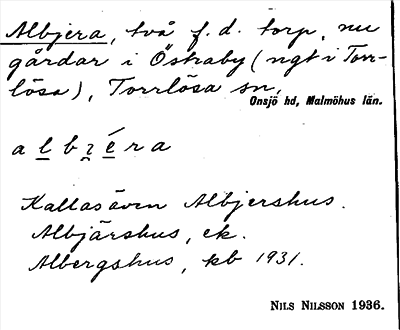 Albjera, två f.d. torp, nu
gårdar i Östraby (ngt i Torr-
lösa), Torrlösa sn,
Onsjö hd, Malmöhus län.
a l b ɪ̯ é r a
Kallas även Albjershus.
Albjärshus, ek.
Albergshus, kb 1931.
NILS NILSSON 1936.